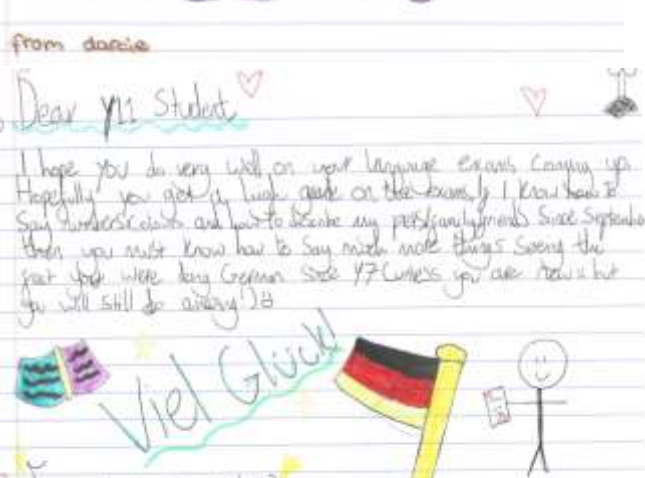 from darcie
Dear Y11 Student
I hope you do very well on your language exams coming up.
Hopefully you get a high grade on the exams, if I know how to
Say numbers, colours and how to describe my pets, family, friends Since September
then you must know how to Say much more things seeing the
fact you were doing German since Y7 (unless you are new) but
you will still do amazing!
Viel Glück!